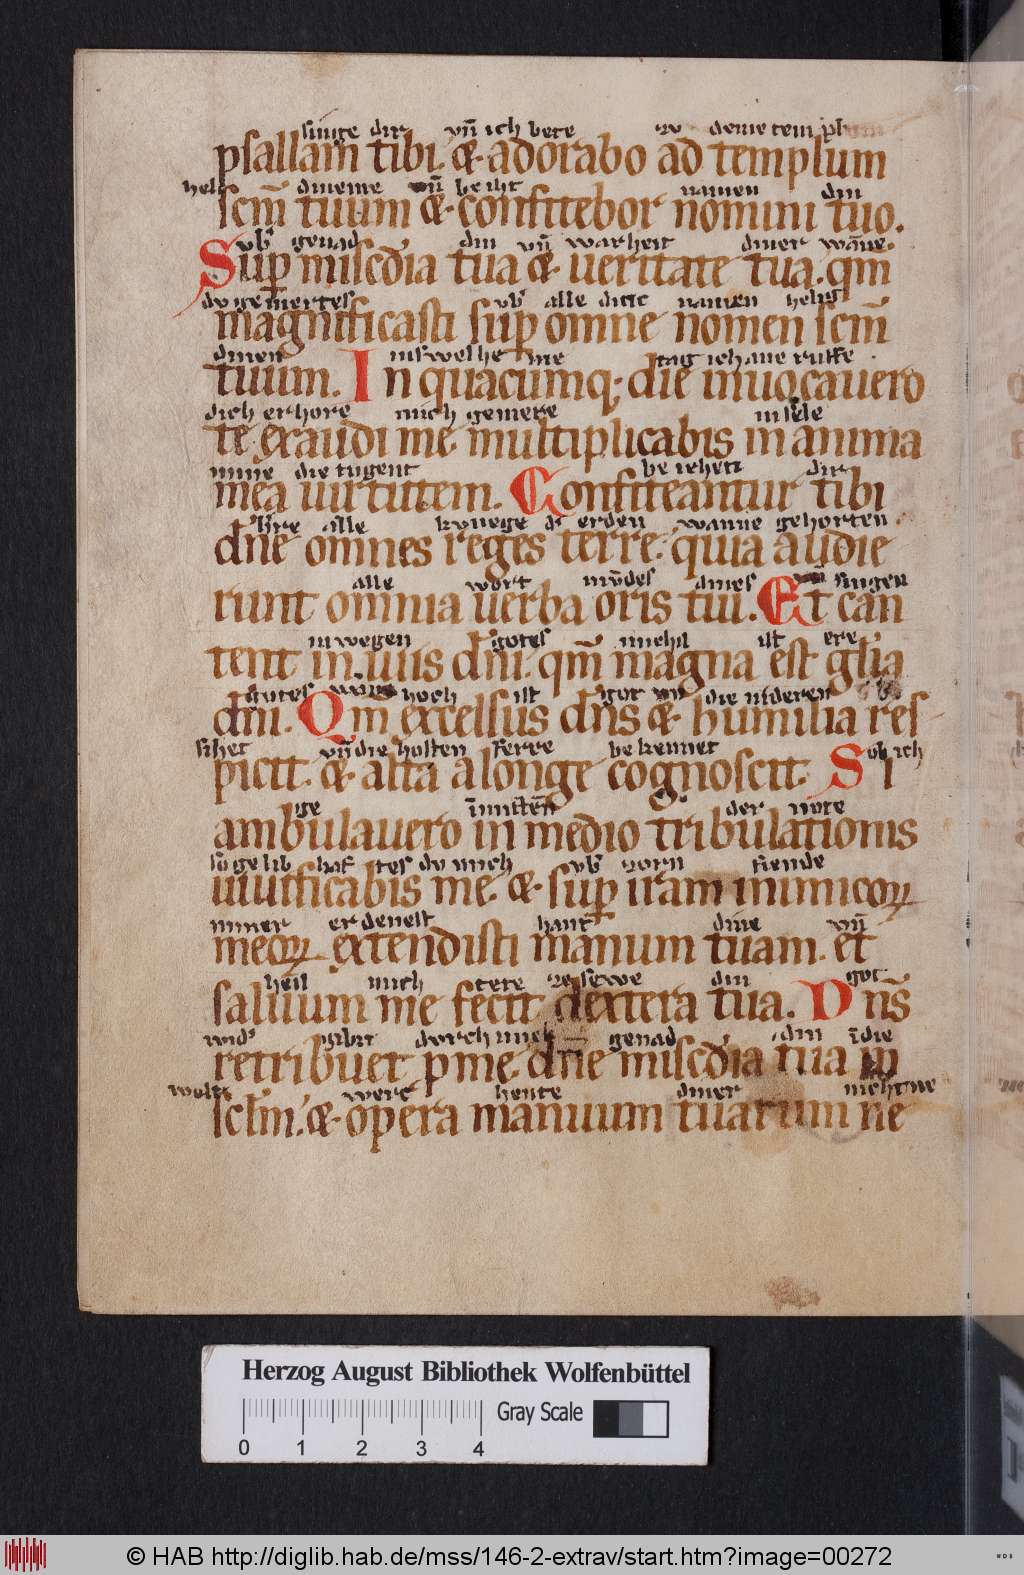 singe dir vn̄ ich bete zv deme tempلum
psallam tibi. & adorabo ad templum
heligē dineme vn̄ beiht namen din
scm̄ tuum & confitebor nomini tuo.
vb' genad din vn̄ warheit diner wāne.
Sup miscd̄ia tua & ueritate tua. qm̄
du gemertes vb' alle dinc namen helig
magnificasti sup omne nomen scm̄
dinen in swelhe me tag ich ane ruffe.
tuum. In quacumq; die inuocauero
dich erhore mich gemere in sele
te exaudi me multiplicabis in anima
mine die tugent beiehen dir
mea uirtutem. Confiteantur tibi
h're alle kvnege d' erden wanne gehorten
dn̄e omnes reges terre: quia audie
alle wort mv̄des dines vn̄ singen
runt omnia uerba oris tui. Et can
in wegen gotes michil ist ere
tent in uiis dn̄i. qm̄ magna est gl̄ia
gotes wan hoch ist got vn̄ die nideren
dn̄i. Qm̄ excelsus dn̄s & humilia res
sihet vn̄ die hohen ferre bekennet ob ich
picit. & alta a longe cognoscit. Si
ge in mitten der note
ambulauero in medio tribulationis
libhaftes du mich vb' zorn fiende
uiuificabis me. & sup iram inimicoꝝ
miner hant dine vn̄
meoꝝ extendisti manum tuam. et
heil mich tete zesewe din got
saluum me fecit dextera tua. Dn̄s
wid' gibit durch mich genad din in die
retribuet p me. dn̄e miscd̄ia tua in
werlt werc hente diner niht
scl̄m. & opera manuum tuarum ne
Herzog August Bibliothek Wolfenbüttel
Gray Scale
0 1 2 3 4
© HAB http://diglib.hab.de/mss/146-2-extrav/start.htm?image=00272
WDB